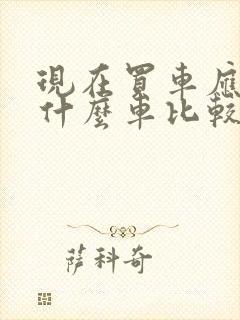 現在買車應
什麼車比較
萨科奇